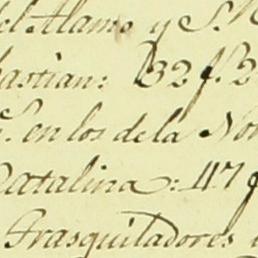 del Alamo y S.
bastian: 132 f. 2
en los de la Nor
Catalina: 117 f
Trasquiladores